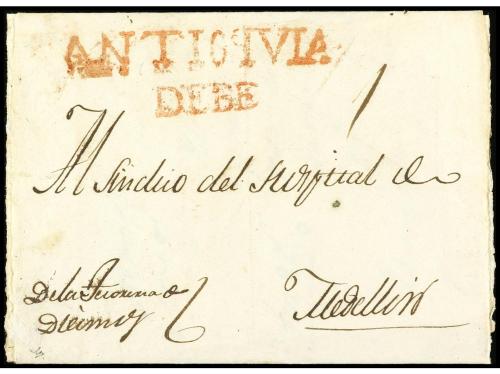 ANTIOQVIA
DEBE
1
Al Sindico del Hospital de
De la Tesoreria de
Diezmos
Medellin